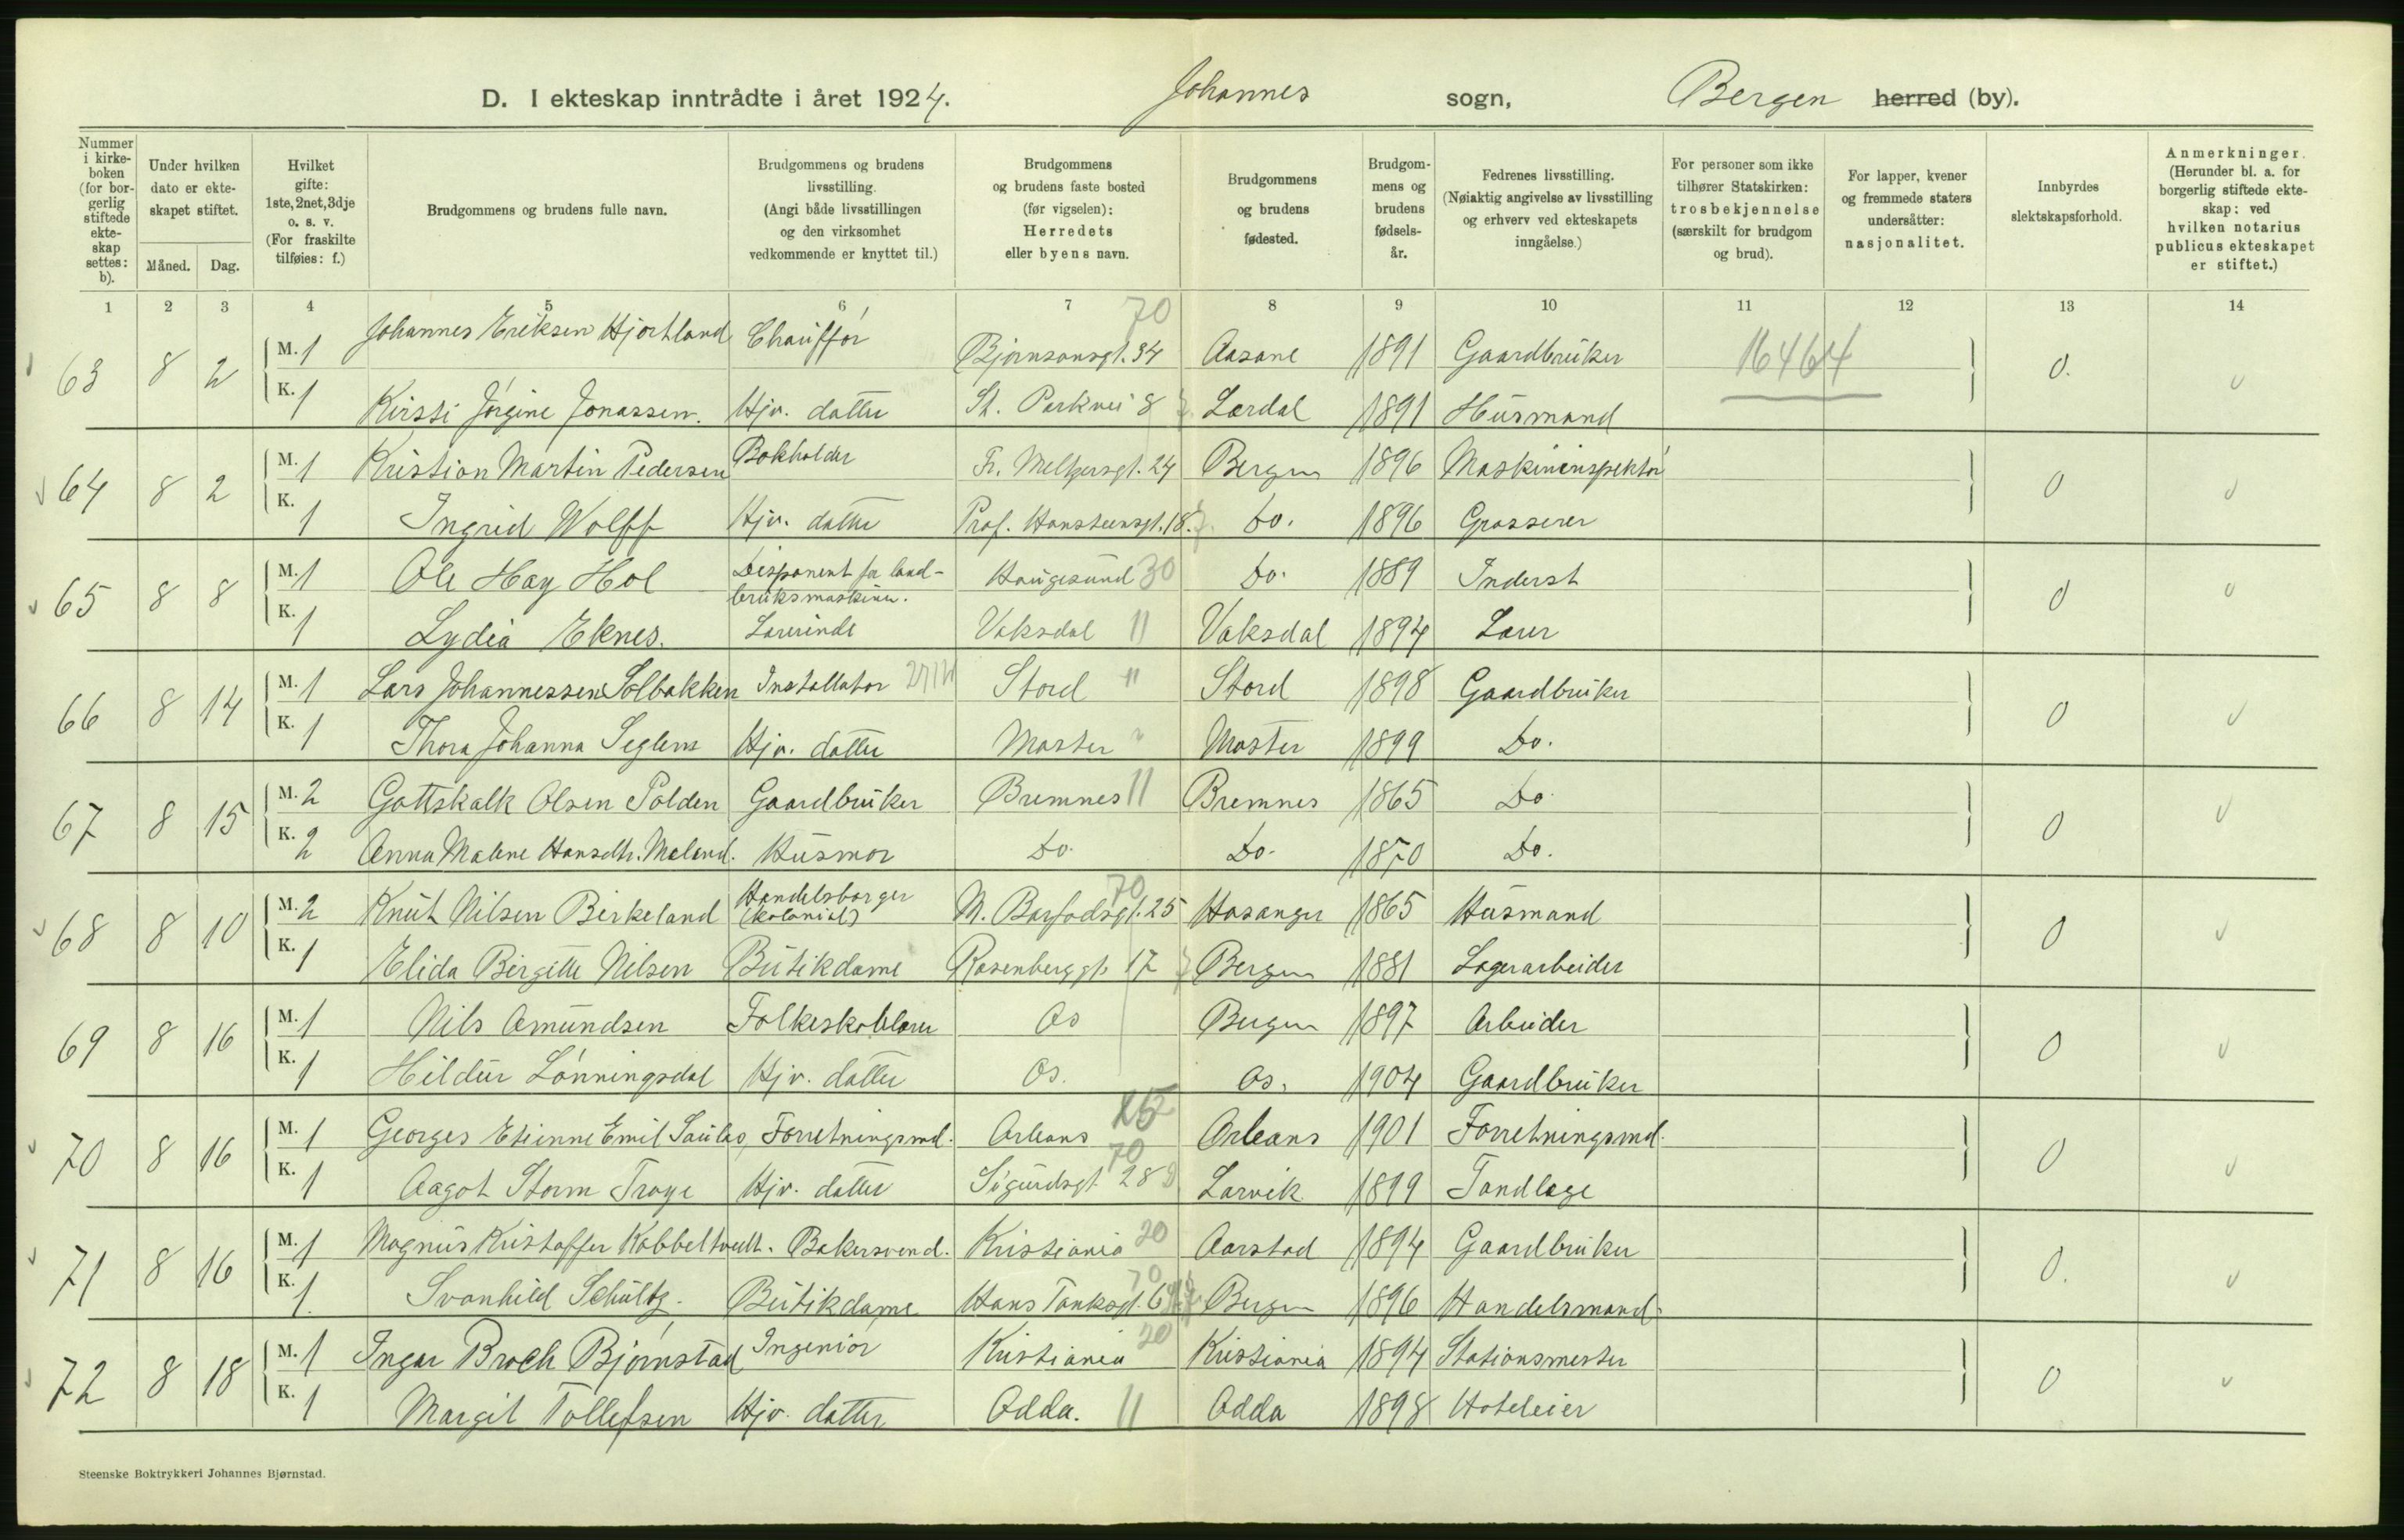 D. I ekteskap inntrådte i året 1924. Johannes sogn, Bergen herred (by).
Nummer i kirkeboken (for borgerlig stiftede ekteskap settes: b).
Under hvilken dato er ekteskapet stiftet.
Måned. Dag.
Hvilket gifte: 1ste, 2net, 3dje o. s. v. (For fraskilte tilføies: f.)
Brudgommens og brudens fulle navn.
Brudgommens og brudens livsstilling. (Angi både livsstillingen og den virksomhet vedkommende er knyttet til.)
Brudgommens og brudens faste bosted (før vigselen): Herredets eller byens navn.
Brudgommens og brudens fødested.
Brudgommens og brudens fødselsår.
Fedrenes livsstilling. (Nøiaktig angivelse av livsstilling og erhverv ved ekteskapets inngåelse.)
For personer som ikke tilhører Statskirken: trosbekjennelse (særskilt for brudgom og brud).
For lapper, kvener og fremmede staters undersåtter: nasjonalitet.
Innbyrdes slektskapsforhold.
Anmerkninger. (Herunder bl. a. for borgerlig stiftede ekteskap: ved hvilken notarius publicus ekteskapet er stiftet.)
1 2 3 4 5 6 7 8 9 10 11 12 13 14
70
63 8 2 M. 1 Johannes Eriksen Hjortland Chauffør Bjørnsonsgt. 34 Aasane 1891 Gaardbruker 16464 0.
K. 1 Kirsti Jørgine Jonassen. Hjv. datter St. Parkvei 8 Lærdal 1891 Husmand
64 8 2 M. 1 Kristian Martin Pedersen Bokholder Fr. Meltzersgt. 24 Bergen 1896 Maskininspektør 0
K. 1 Ingrid Wolff Hjv. datter Prof. Hansteensgt. 18. Do. 1896 Grosserer
65 8 8 M. 1 Ole Hay Hol Disponent for landbruksmaskiner. Haugesund 30 Do. 1889 Inderst 0
K. 1 Lydia Eknes. Lærerinde Vaksdal 11 Vaksdal 1894 Lærer
66 8 14 M. 1 Lars Johannessen Solbakken Installatør Stord 11 Stord 1898 Gaardbruker 0
K. 1 Thora Johanna Seglem Hjv. datter Moster " Moster 1899 Do.
67 8 15 M. 2 Gottskalk Olsen Polden Gaardbruker Bremnes 11 Bremnes 1865 Do 0
K. 2 Anna Malene Hansdtr. Meland. Husmor Do. Do. 1870 Do.
68 8 10 M. 2 Knut Nilsen Birkeland Handelsborger (kolonial) M. Barfodsgt. 25 70 Hosanger 1865 Husmand 0
K. 1 Elida Birgitte Nilsen Butikdame Rosenberggt. 17 Bergen 1881 Lagerarbeider
69 8 16 M. 1 Nils Amundsen Folkeskolelærer Os Bergen 1897 Arbeider 0
K. 1 Hildur Lønningsdal Hjv. datter Os. Os. 1904 Gaardbruker
70 8 16 M. 1 Georges Etienne Emil Saulas, Forretningsmd. Orleans Orleans 1901 Forretningsmd. 0
K. 1 Aagot Storm Troye Hjv. datter Sigurdsgt 28 70 Larvik 1899 Tandlæge
71 8 16 M. 1 Magnus Kristoffer Kobbeltvedt. Bakersvend. Kristiania 20 Aarstad 1894 Gaardbruker 0.
K. 1 Svanhild Schültz. Butikdame Hans Tanksgt. 6 70 Bergen 1896 Handelsmand.
72 8 18 M. 1 Ingar Broch Bjørnstad Ingeniør Kristiania 20 Kristiania 1894 Stationsmester 0
K. 1 Margit Tollefsen Hjv. datter Odda. 11 Odda 1898 Hoteleier
Steenske Boktrykkeri Johannes Bjørnstad.